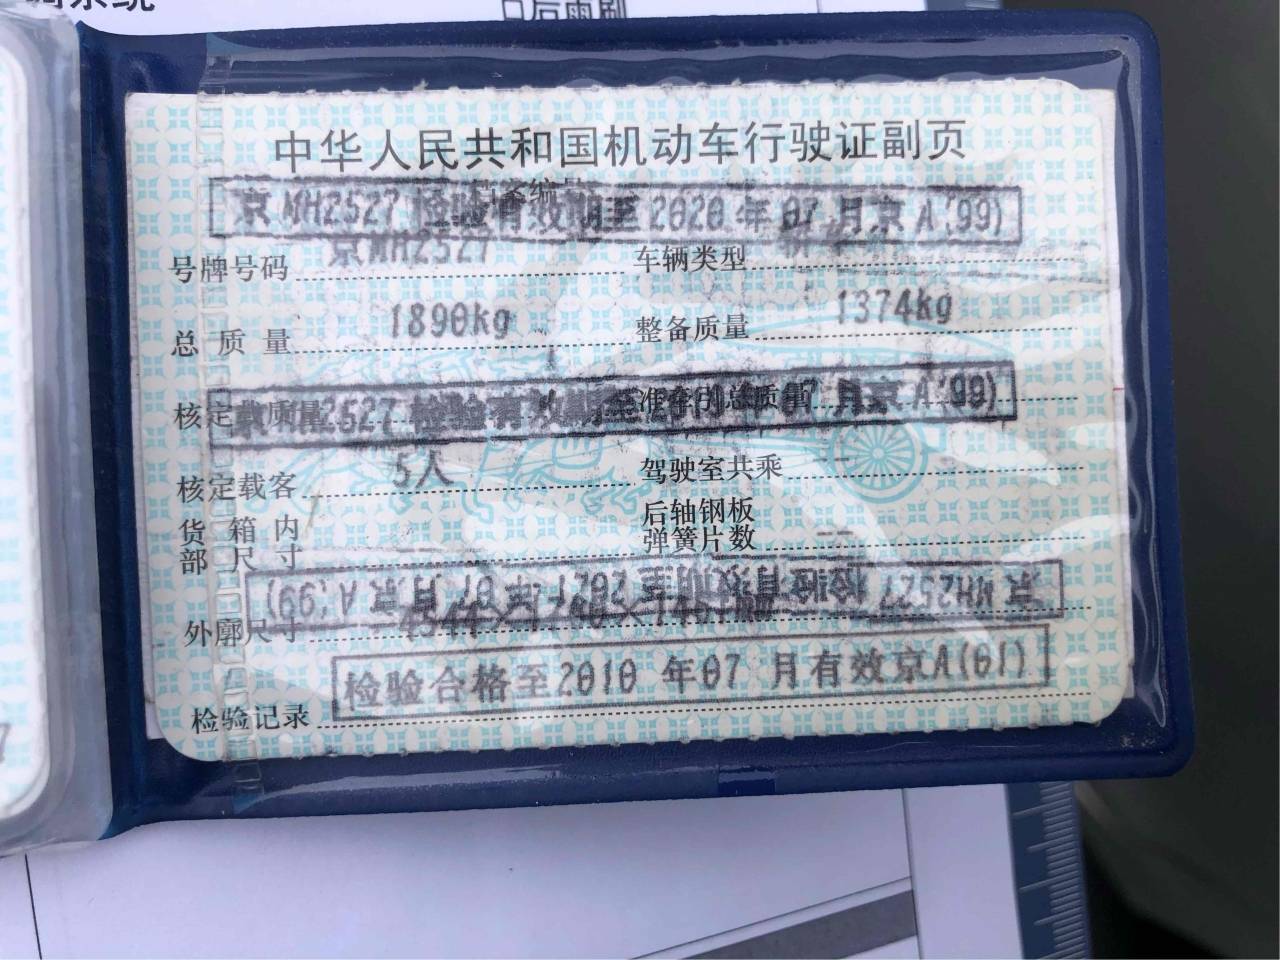 中华人民共和国机动车行驶证副页
京MH2527 检验有效期至2020年07月京A(99)
号牌号码 京MH2527 车辆类型
总质量 1890kg 整备质量 1374kg
核定载质量 准牵引总质量
2527 检验有效期至 07月京A(99)
核定载客 5人 驾驶室共乘 —
货箱内部尺寸 — 后轴钢板弹簧片数 —
京MH2527 检验有效期至2021年07月京A(99)
外廓尺寸
检验记录 检验合格至2010年07月有效京A(01)